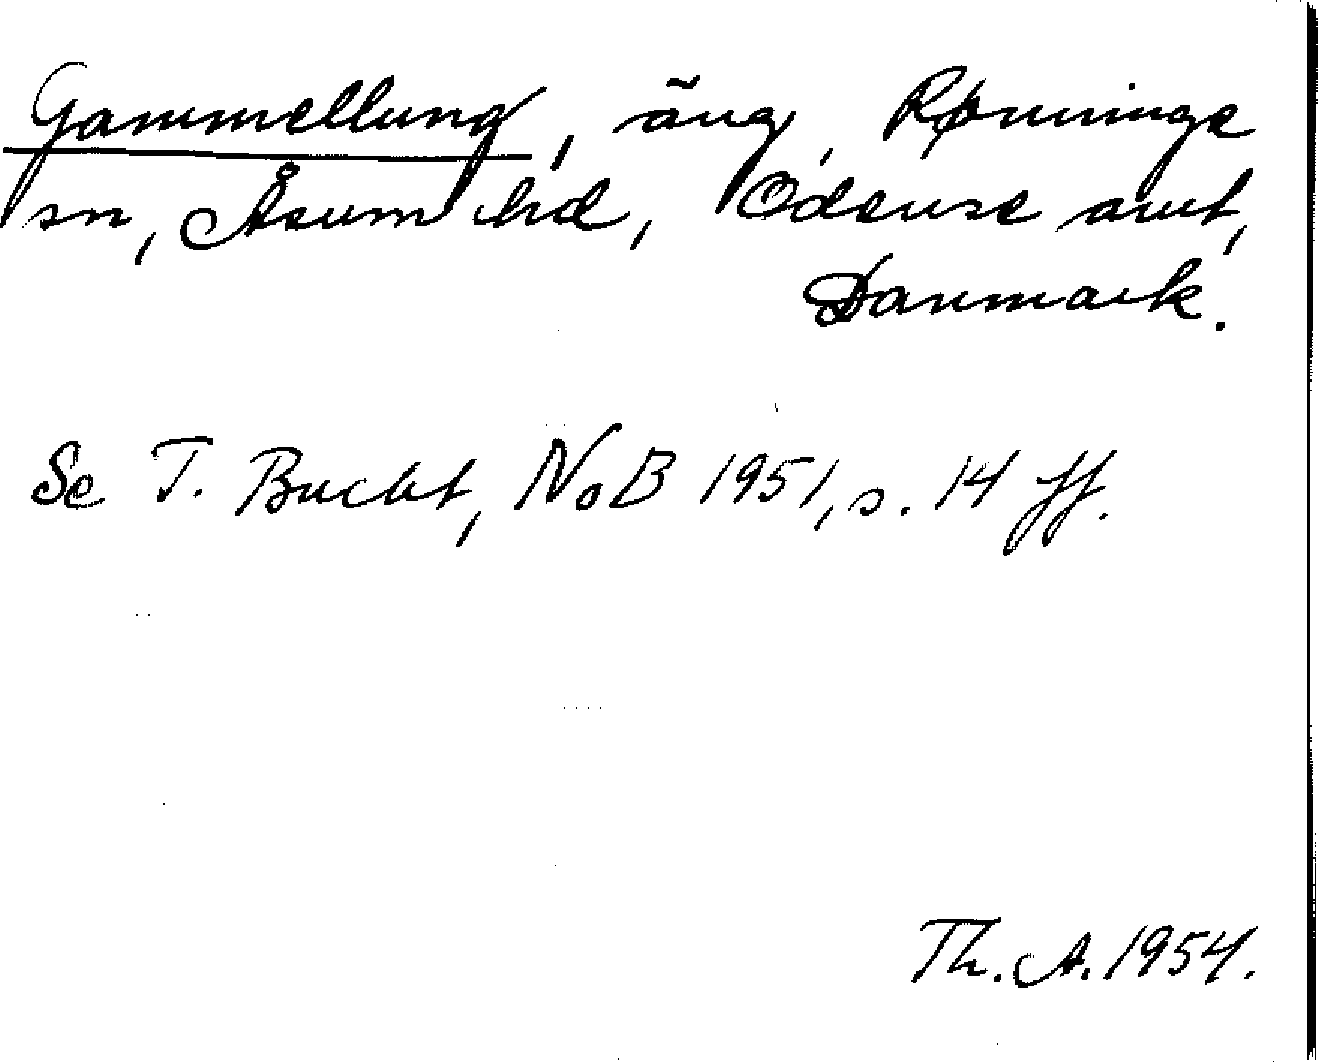 Gammellung, äng, Rønninge
sn, Åsum hd, Odense amt,
Danmark.
Se T. Bucht, NoB 1951, s. 14 ff.
Th. A. 1954.